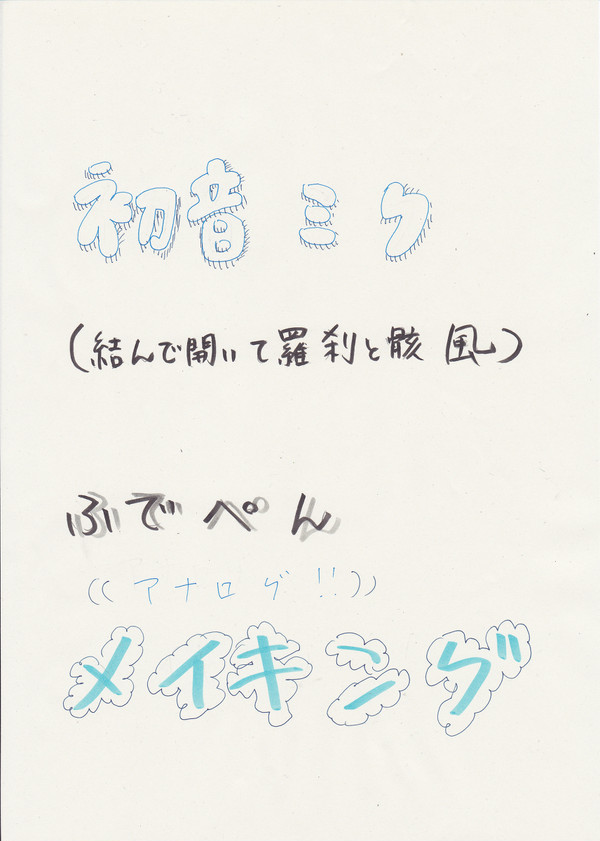 初音ミク
(結んで開いて羅刹と骸 風)
ふでぺん
((アナログ!!))
メイキング